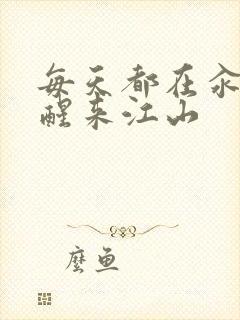 每天都在
醒来江山
麼鱼